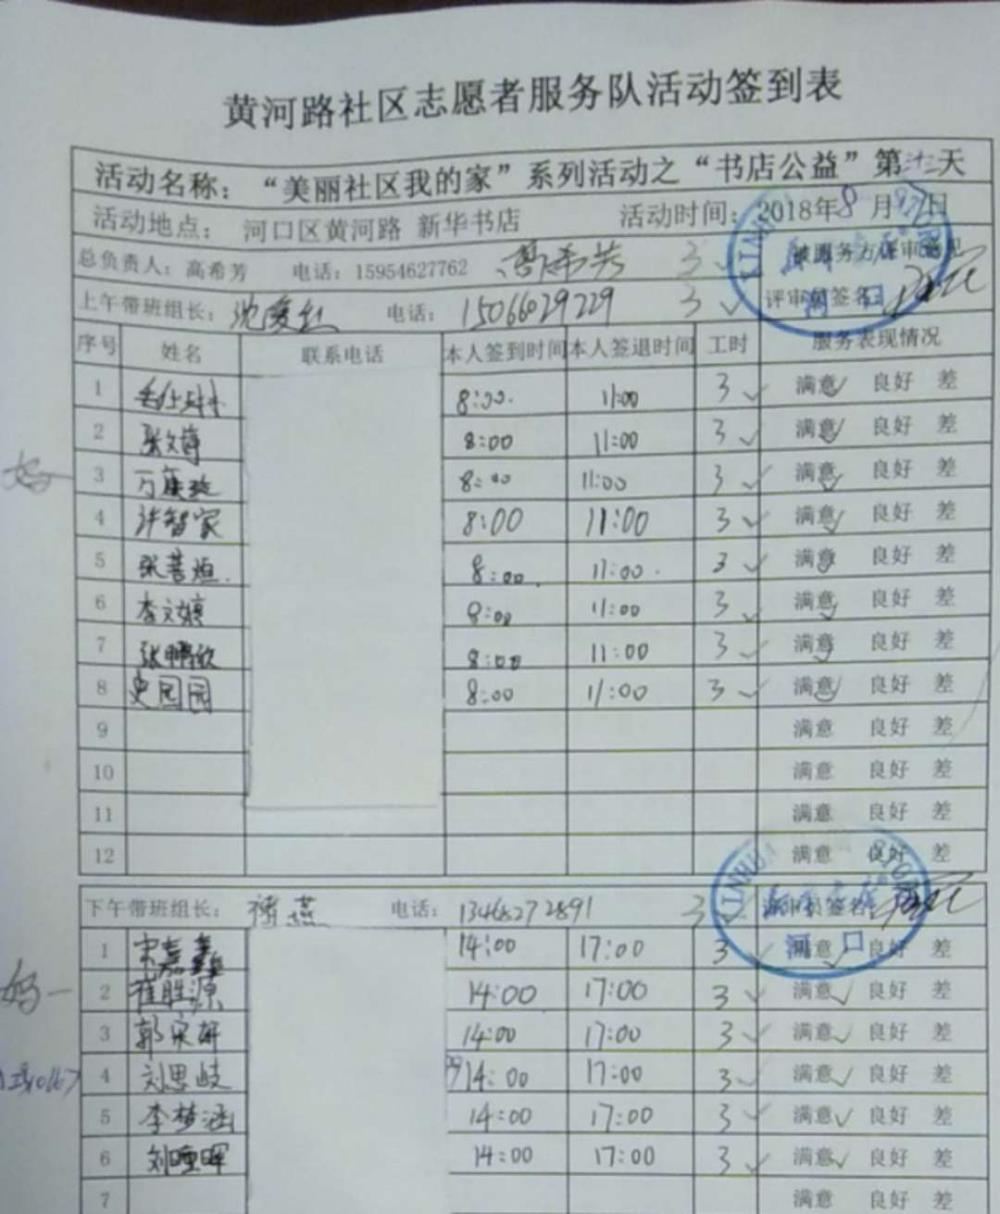 黄河路社区志愿者服务队活动签到表
活动名称：“美丽社区我的家”系列活动之“书店公益”第 天
活动地点： 河口区黄河路 新华书店 活动时间：2018年8月 日
总负责人：高希芳 电话：15954627762 高希芳 3 被服务方评审意见
上午带班组长： 电话：15066029229 3 评审员签名：
序号 姓名 联系电话 本人签到时间 本人签退时间 工时 服务表现情况
1 8:00. 11:00 3 满意 良好 差
2 张文博 8:00 11:00 3 满意 良好 差
妈 3 8:00 11:00 3 满意 良好 差
4 许智家 8:00 11:00 3 满意 良好 差
5 8:00. 11:00. 3 满意 良好 差
6 李文婷 8:00 11:00 3 满意 良好 差
7 张鹏欣 8:00 11:00 3 满意 良好 差
8 史园园 8:00 11:00 3 满意 良好 差
9 满意 良好 差
10 满意 良好 差
11 满意 良好 差
12 满意 良好 差
下午带班组长： 褚燕 电话：13468272891 3 评审员签名
河口
1 宋嘉鑫 14:00 17:00 3 满意 良好 差
妈 2 崔胜源 14:00 17:00 3 满意 良好 差
3 郭宋妍 14:00 17:00 3 满意 良好 差
4 刘思岐 14:00 17:00 3 满意 良好 差
5 李梦涵 14:00 17:00 3 满意 良好 差
6 14:00 17:00 3 满意 良好 差
7 满意 良好 差